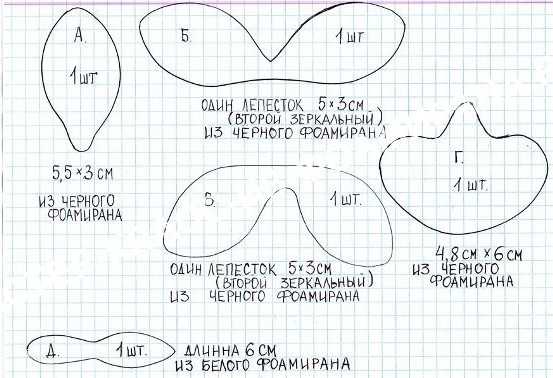 А.
1шт
5,5×3см
ИЗ ЧЕРНОГО
ФОАМИРАНА
Б.
1шт
ОДИН ЛЕПЕСТОК 5×3см
(ВТОРОЙ ЗЕРКАЛЬНЫЙ)
ИЗ ЧЕРНОГО ФОАМИРАНА
В.
1шт.
ОДИН ЛЕПЕСТОК 5×3см
(ВТОРОЙ ЗЕРКАЛЬНЫЙ)
ИЗ ЧЕРНОГО ФОАМИРАНА
Г.
1шт.
4,8см×6см
ИЗ ЧЕРНОГО
ФОАМИРАНА
Д.
1шт.
ДЛИННА 6СМ
ИЗ БЕЛОГО ФОАМИРАНА